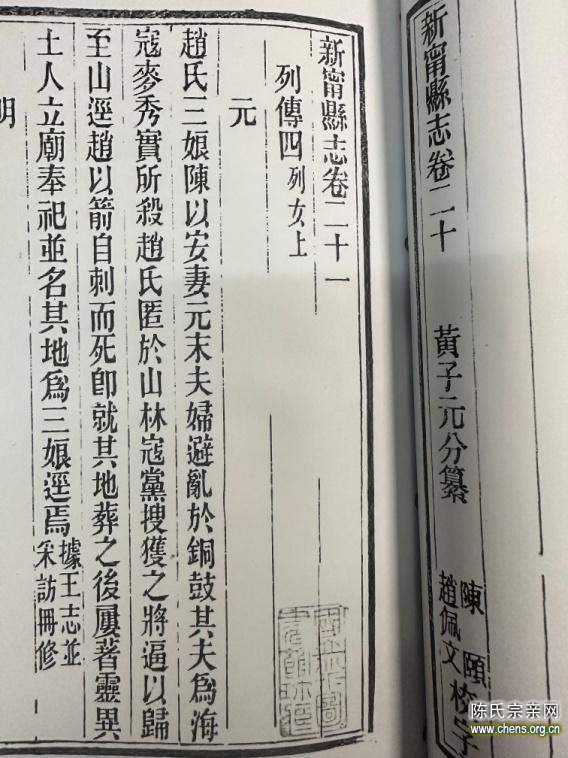 新甯縣志卷二十
黃子元分纂
陳頤
趙佩文
校字
新甯縣志卷二十一
列傳四列女上
元
趙氏三娘陳以安妻元末夫婦避亂於銅鼓其夫爲海
寇麥秀實所殺趙氏匿於山林寇黨搜獲之將逼以歸
至山逕趙以箭自刺而死卽就其地葬之後屢著靈異
土人立廟奉祀並名其地爲三娘逕焉據王志並
采訪冊修
明
陳氏宗亲网
www.chens.org.cn